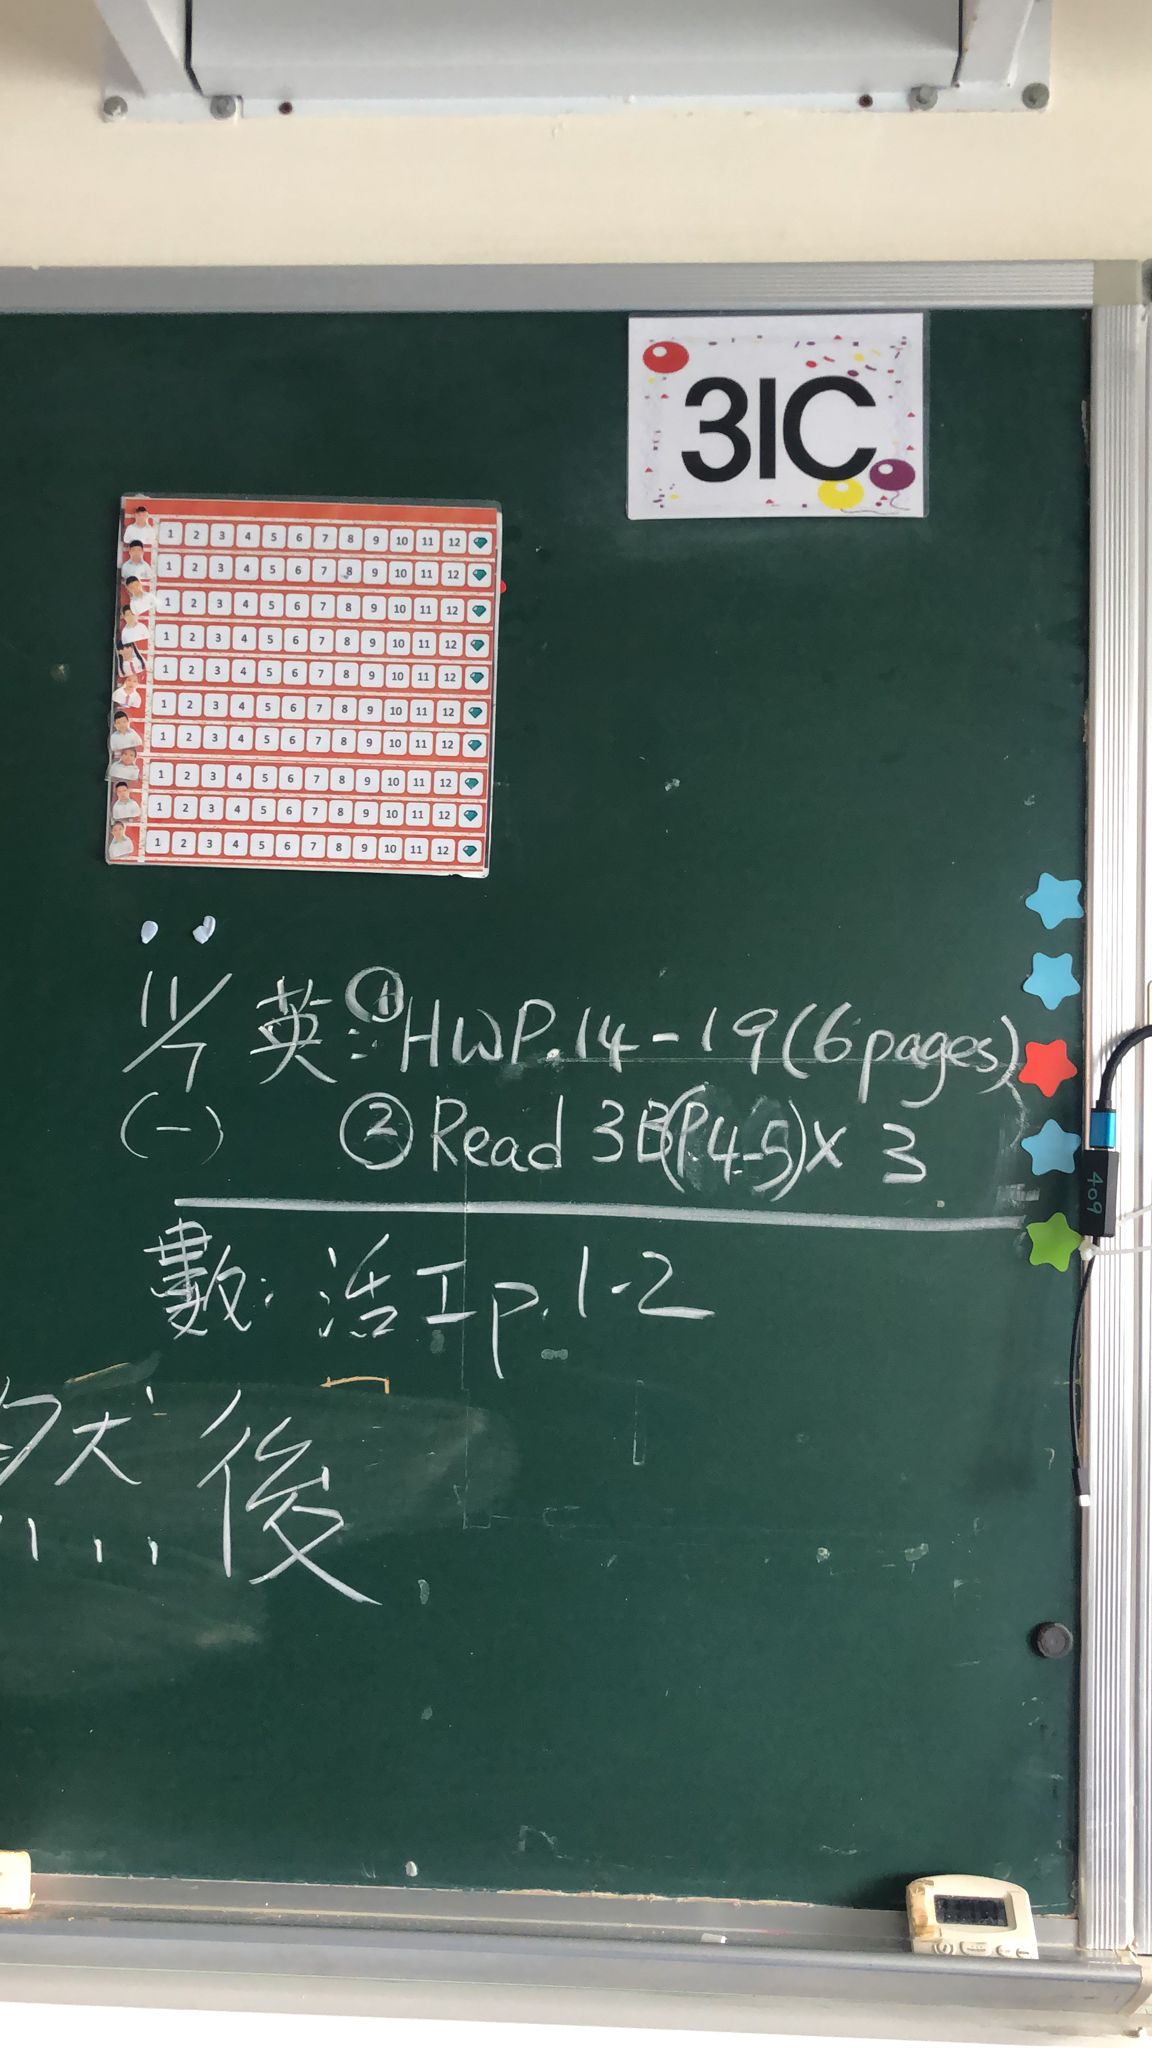 3IC
1 2 3 4 5 6 7 8 9 10 11 12
1 2 3 4 5 6 7 8 9 10 11 12
1 2 3 4 5 6 7 8 9 10 11 12
1 2 3 4 5 6 7 8 9 10 11 12
1 2 3 4 5 6 7 8 9 10 11 12
1 2 3 4 5 6 7 8 9 10 11 12
1 2 3 4 5 6 7 8 9 10 11 12
1 2 3 4 5 6 7 8 9 10 11 12
1 2 3 4 5 6 7 8 9 10 11 12
1 2 3 4 5 6 7 8 9 10 11 12
11/7 英：① HW P.14-19 (6 pages)
(一) ② Read 3B(P.4-5) x 3
數：活工 p.1-2
然後
409